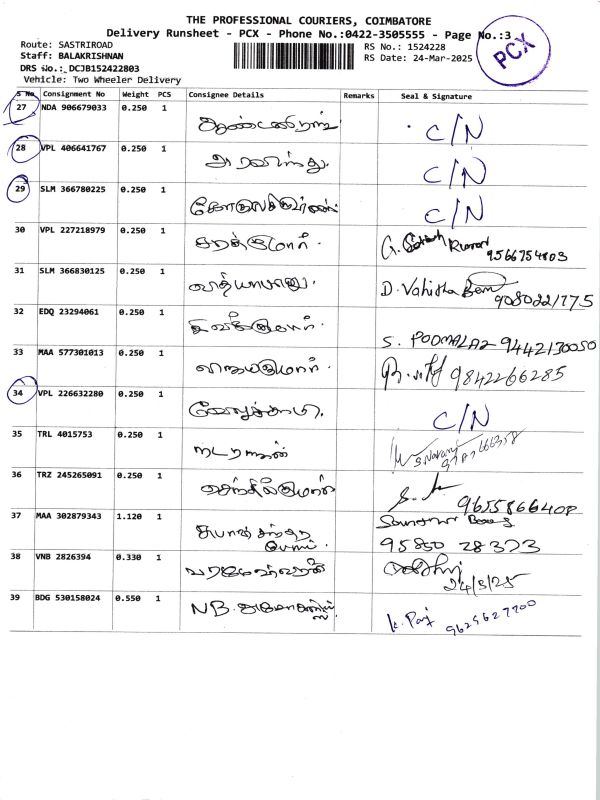 THE PROFESSIONAL COURIERS, COIMBATORE
Delivery Runsheet - PCX - Phone No.:0422-3505555 - Page No.:3
PCX
Route: SASTRIROAD
RS No.: 1524228
Staff: BALAKRISHNAN
RS Date: 24-Mar-2025
DRS No.: DCJB152422803
Vehicle: Two Wheeler Delivery
S No Consignment No Weight PCS Consignee Details Remarks Seal & Signature
27 NDA 906679033 0.250 1 C/N
28 VPL 406641767 0.250 1 அரவிந்து. C/N
29 SLM 366780225 0.250 1 C/N
30 VPL 227218979 0.250 1 சரத்குமார். G. Kumar 9566754803
31 SLM 366830125 0.250 1 வித்யாபானு. D. Vahitha
32 EDQ 23294061 0.250 1 S. 9442130050
33 MAA 577301013 0.250 1 விஜயகுமார். 9842266285
34 VPL 226632280 0.250 1 வேலுச்சாமி. C/N
35 TRL 4015753 0.250 1 நடராஜன்
36 TRZ 245265091 0.250 1 செந்தில்குமார்
37 MAA 302879343 1.120 1 சுபாஷ் சந்திர போஸ். 95850 28323
38 VNB 2826394 0.330 1 பரமேஷ்வரன் 24/3/25
39 BDG 530158024 0.550 1 NB. K. 9629627700